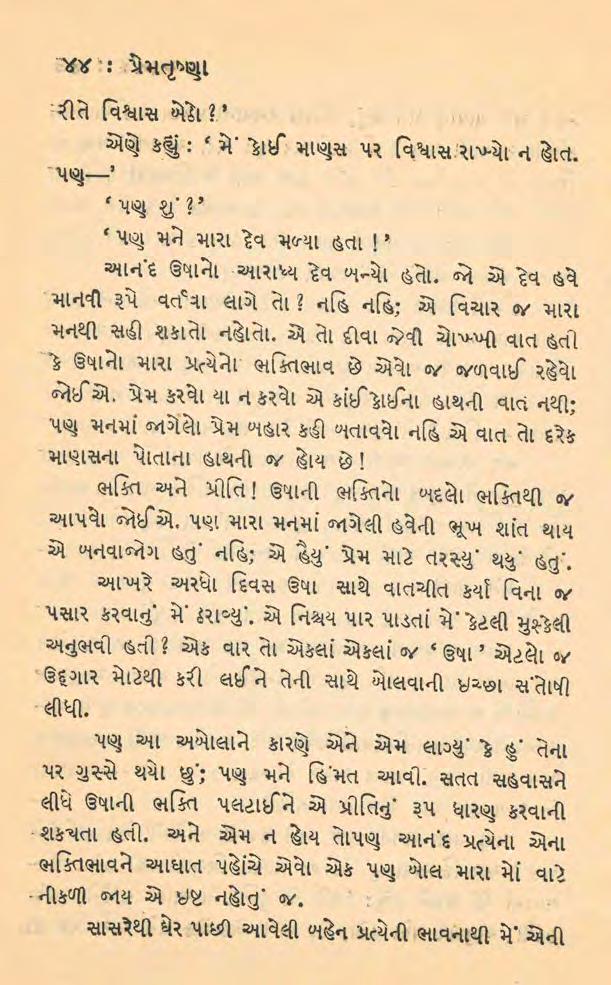 ૪૪ : પ્રેમતૃષ્ણા
રીતે વિશ્વાસ બેઠો ?’
એણે કહ્યું : ‘ મેં કોઈ માણસ પર વિશ્વાસ રાખ્યો ન હોત.
પણ—’
‘ પણ શું ?’
‘ પણ મને મારા દેવ મળ્યા હતા !’
આનંદ ઉષાનો આરાધ્ય દેવ બન્યો હતો. જો એ દેવ હવે
માનવી રૂપે વર્તવા લાગે તો ? નહિ નહિ; એ વિચાર જ મારા
મનથી સહી શકાતો નહોતો. એ તો દીવા જેવી ચોખ્ખી વાત હતી
કે ઉષાનો મારા પ્રત્યેનો ભક્તિભાવ છે એવો જ જળવાઈ રહેવો
જોઈએ. પ્રેમ કરવો યા ન કરવો એ કાંઈ કોઈના હાથની વાત નથી;
પણ મનમાં જાગેલો પ્રેમ બહાર કહી બતાવવો નહિ એ વાત તો દરેક
માણસના પોતાના હાથની જ હોય છે !
ભક્તિ અને પ્રીતિ ! ઉષાની ભક્તિનો બદલો ભક્તિથી જ
આપવો જોઈએ. પણ મારા મનમાં જાગેલી હવેની ભૂખ શાંત થાય
એ બનવાજોગ હતું નહિ; એ હૈયું પ્રેમ માટે તરસ્યું થયું હતું.
આખરે અરધો દિવસ ઉષા સાથે વાતચીત કર્યા વિના જ
પસાર કરવાનું મેં ઠરાવ્યું. એ નિશ્ચય પાર પાડતાં મેં કેટલી મુશ્કેલી
અનુભવી હતી ? એક વાર તો એકલાં એકલાં જ ‘ ઉષા ’ એટલો જ
ઉદ્દગાર મોટેથી કરી લઈને તેની સાથે બોલવાની ઇચ્છા સંતોષી
લીધી.
પણ આ અબોલાને કારણે એને એમ લાગ્યું કે હું તેના
પર ગુસ્સે થયો છું; પણ મને હિંમત આવી. સતત સહવાસને
લીધે ઉષાની ભક્તિ પલટાઈને એ પ્રીતિનું રૂપ ધારણ કરવાની
શકયતા હતી. અને એમ ન હોય તોપણ આનંદ પ્રત્યેના એના
ભક્તિભાવને આઘાત પહોંચે એવો એક પણ બોલ મારા મોં વાટે
નીકળી જાય એ ઇષ્ટ નહોતું જ.
સાસરેથી ઘેર પાછી આવેલી બહેન પ્રત્યેની ભાવનાથી મેં એની